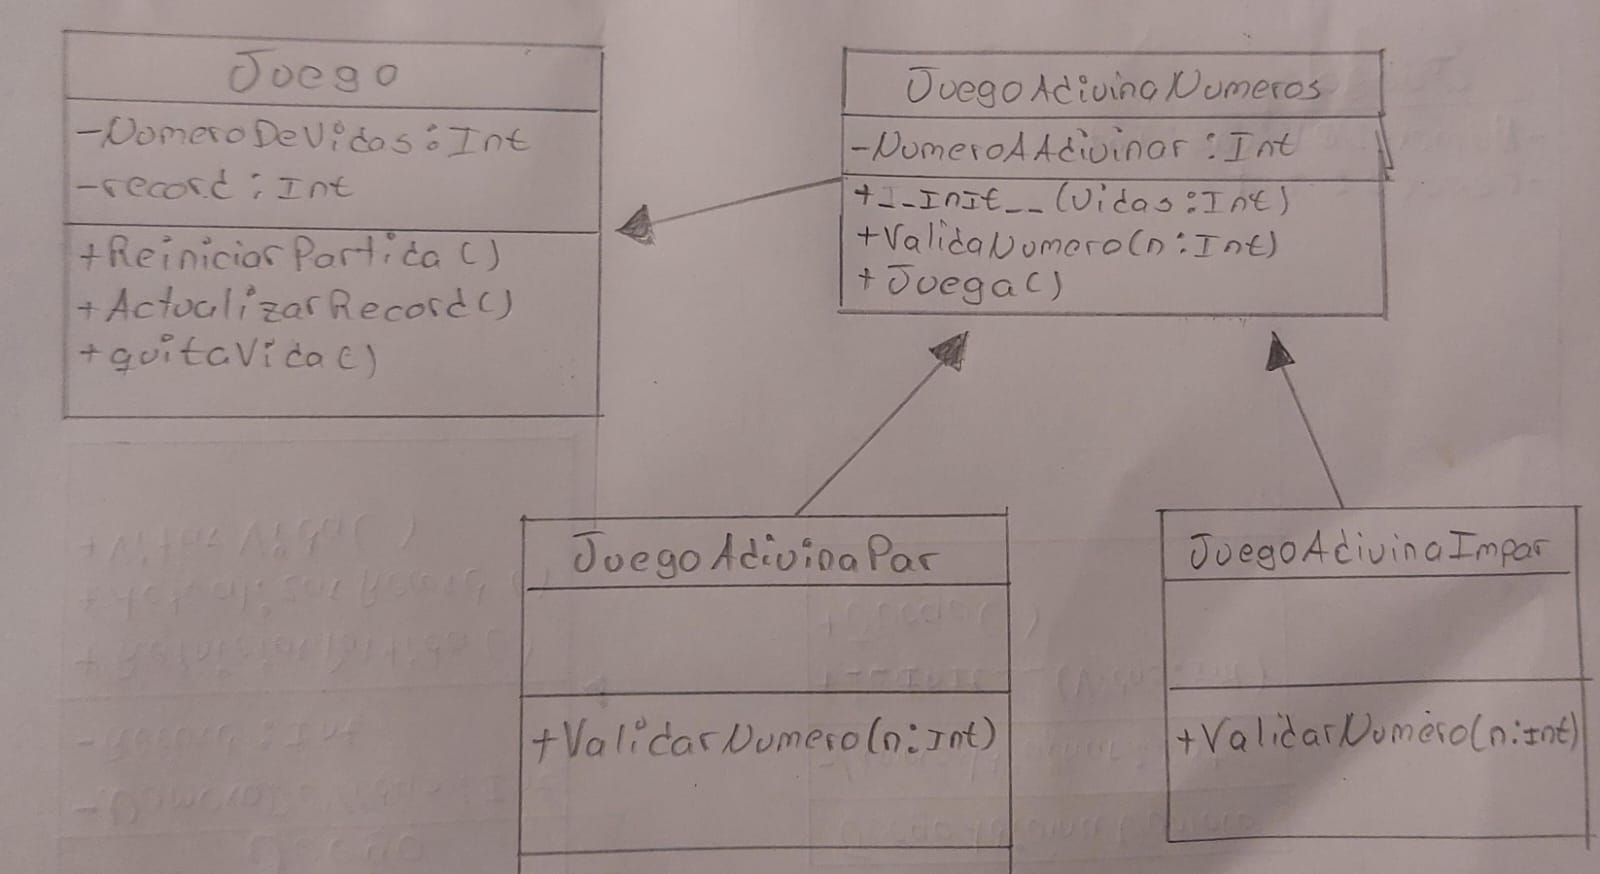 Juego
-NumeroDeVidas:Int
-record:Int
+ReiniciarPartida()
+ActualizarRecord()
+quitaVida()
JuegoAdivinaNumeros
-NumeroAAdivinar:Int
+__InIt__(Vidas:Int)
+ValidaNumero(n:Int)
+Juega()
JuegoAdivinaPar
+ValidarNumero(n:Int)
JuegoAdivinaImpar
+ValidarNumero(n:Int)